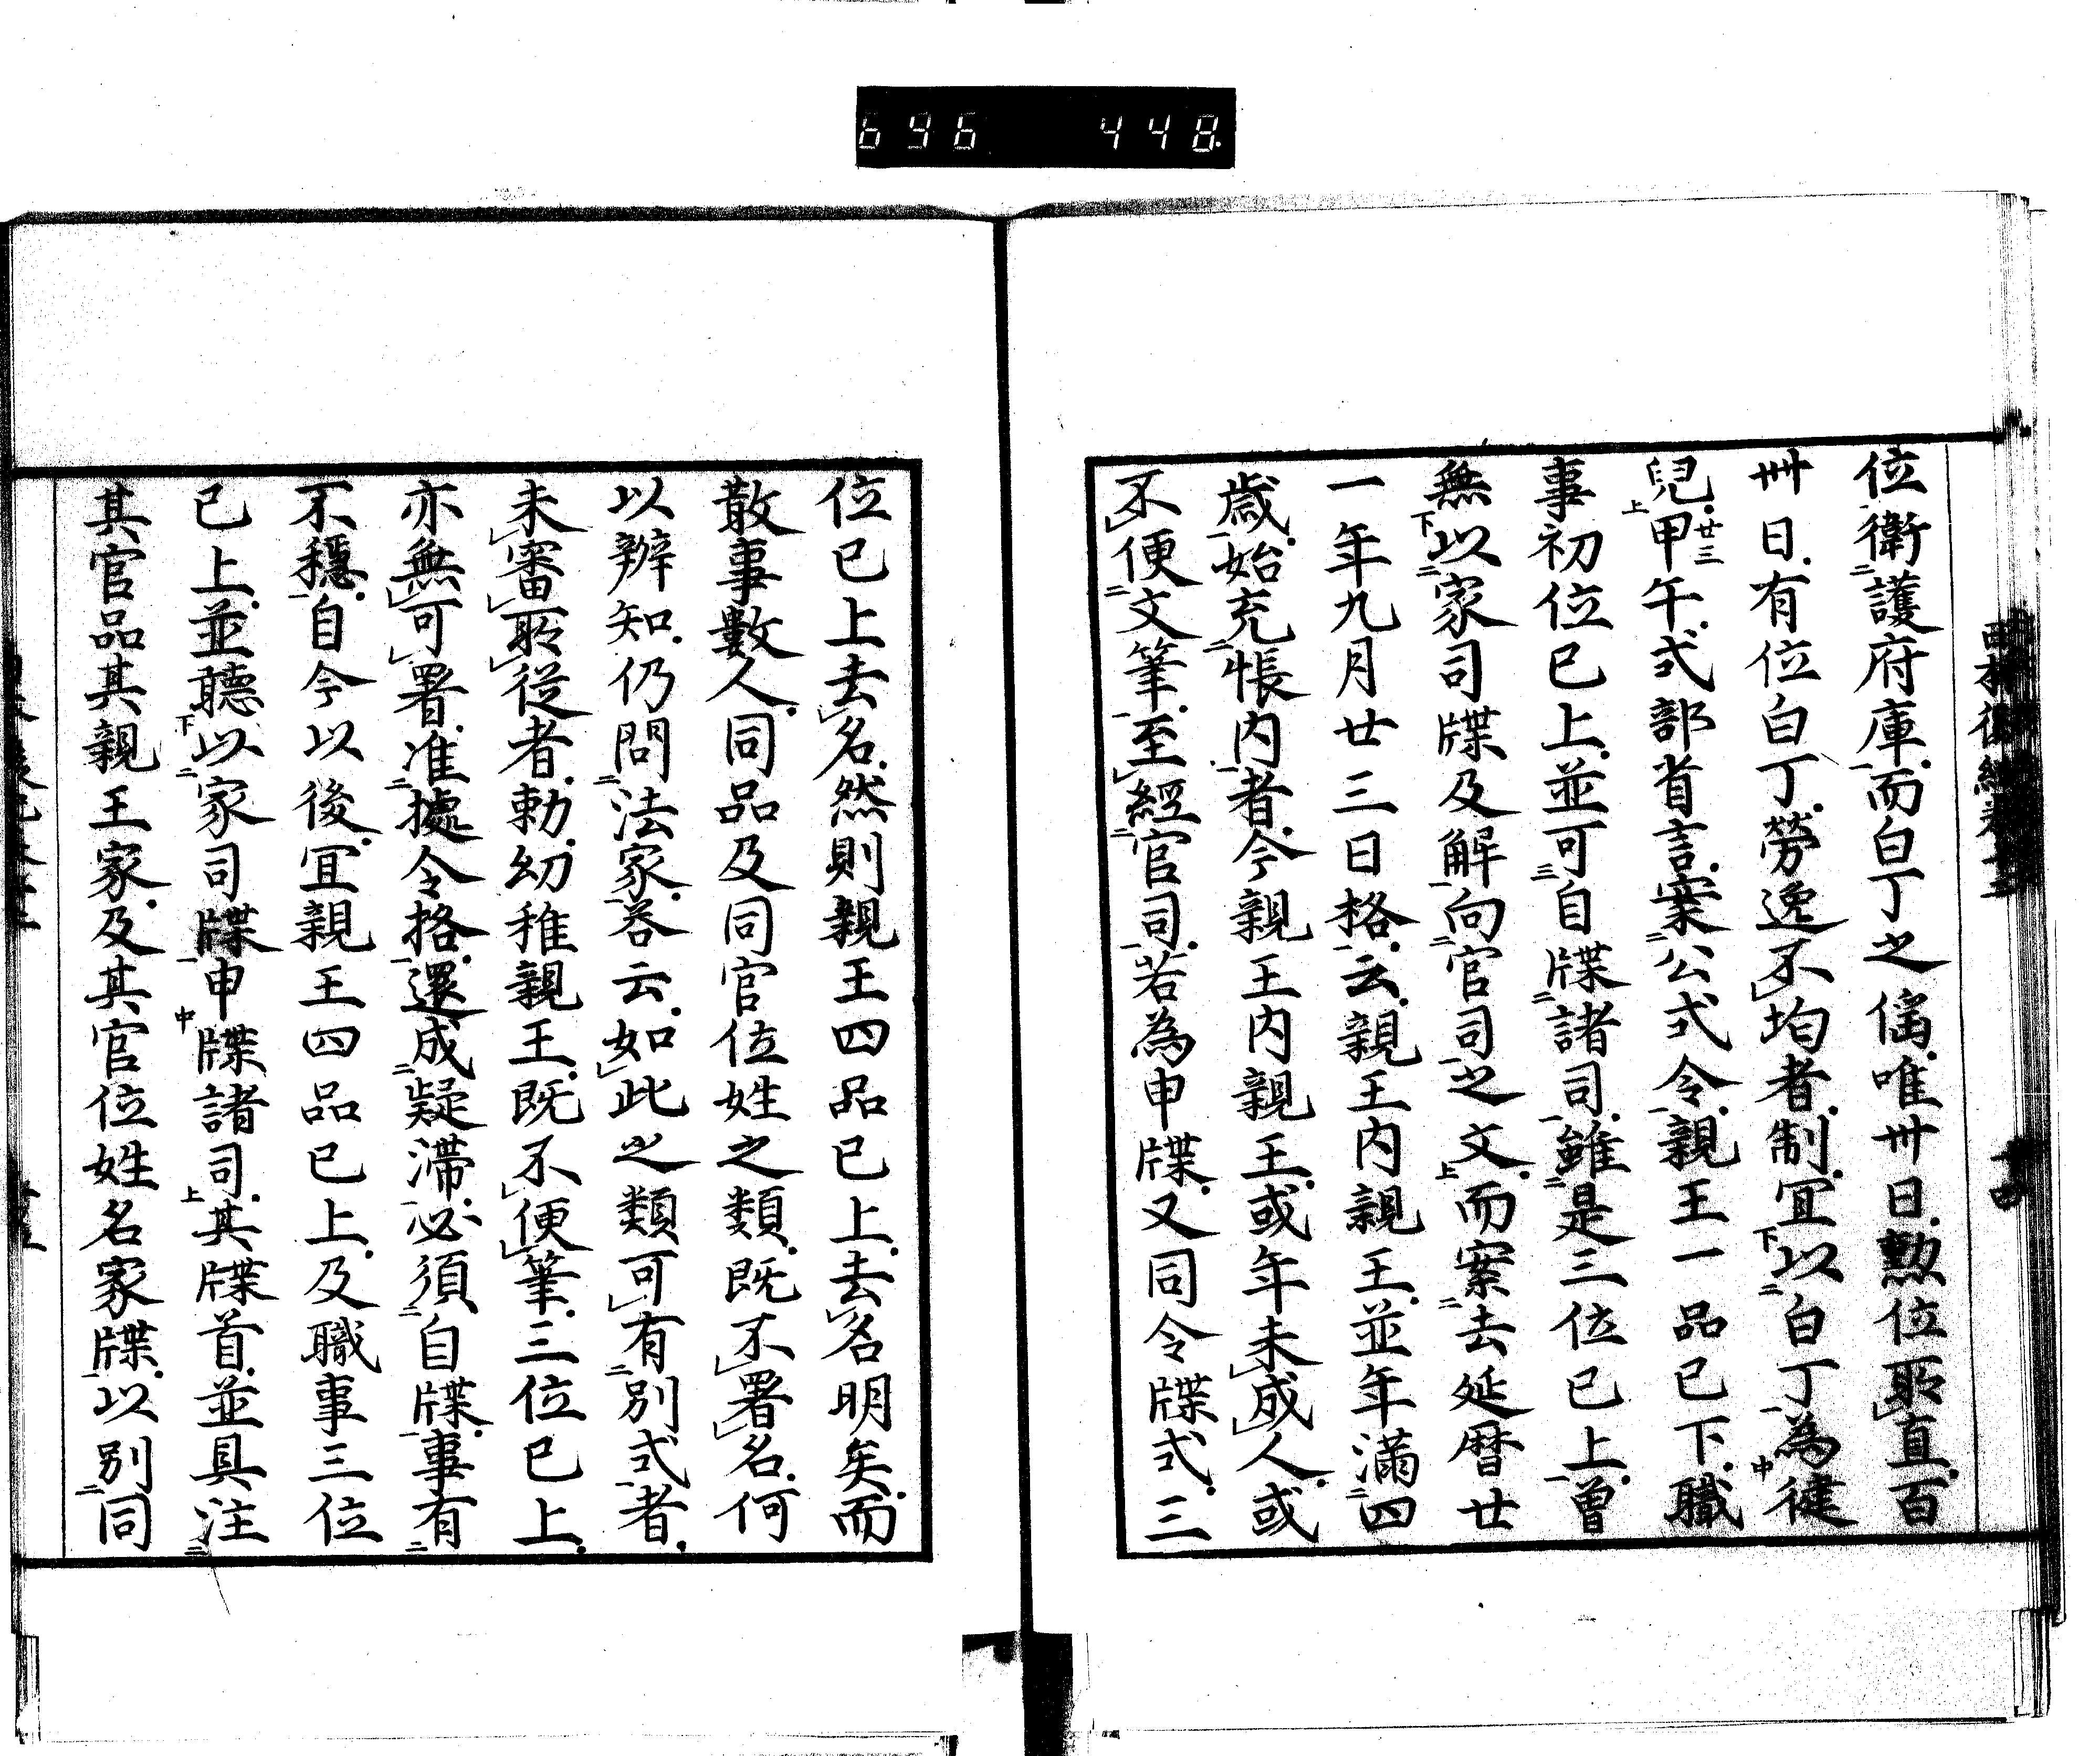 696 448
位衛護府庫而白丁之徭唯卅日勲位耴直百
卌日有位白丁勞逸不均者制宜以白丁為健
兒甲午式部省言案公式令親王一品已下職
廿三
事初位已上並可自牒諸司雖是三位已上曾
無以家司牒及解向官司之文而案去延曆廿
一年九月廿三日格云親王内親王並年滿四
歳始充帳内者今親王内親王或年未成人或
不便文筆至經官司若為申牒又同令牒式三
位已上去名然則親王四品已上去名明矣而
散事數人同品及同官位姓之類既不署名何
以辨知仍問法家荅云如此之類可有別式者
未審耴從者勅幼稚親王既不便筆三位已上
亦無可署准據令格還成疑滯必須自牒事有
不穩自今以後宜親王四品已上及職事三位
已上並聽以家司牒申牒諸司其牒首並具注
其官品其親王家及其官位姓名家牒以別同